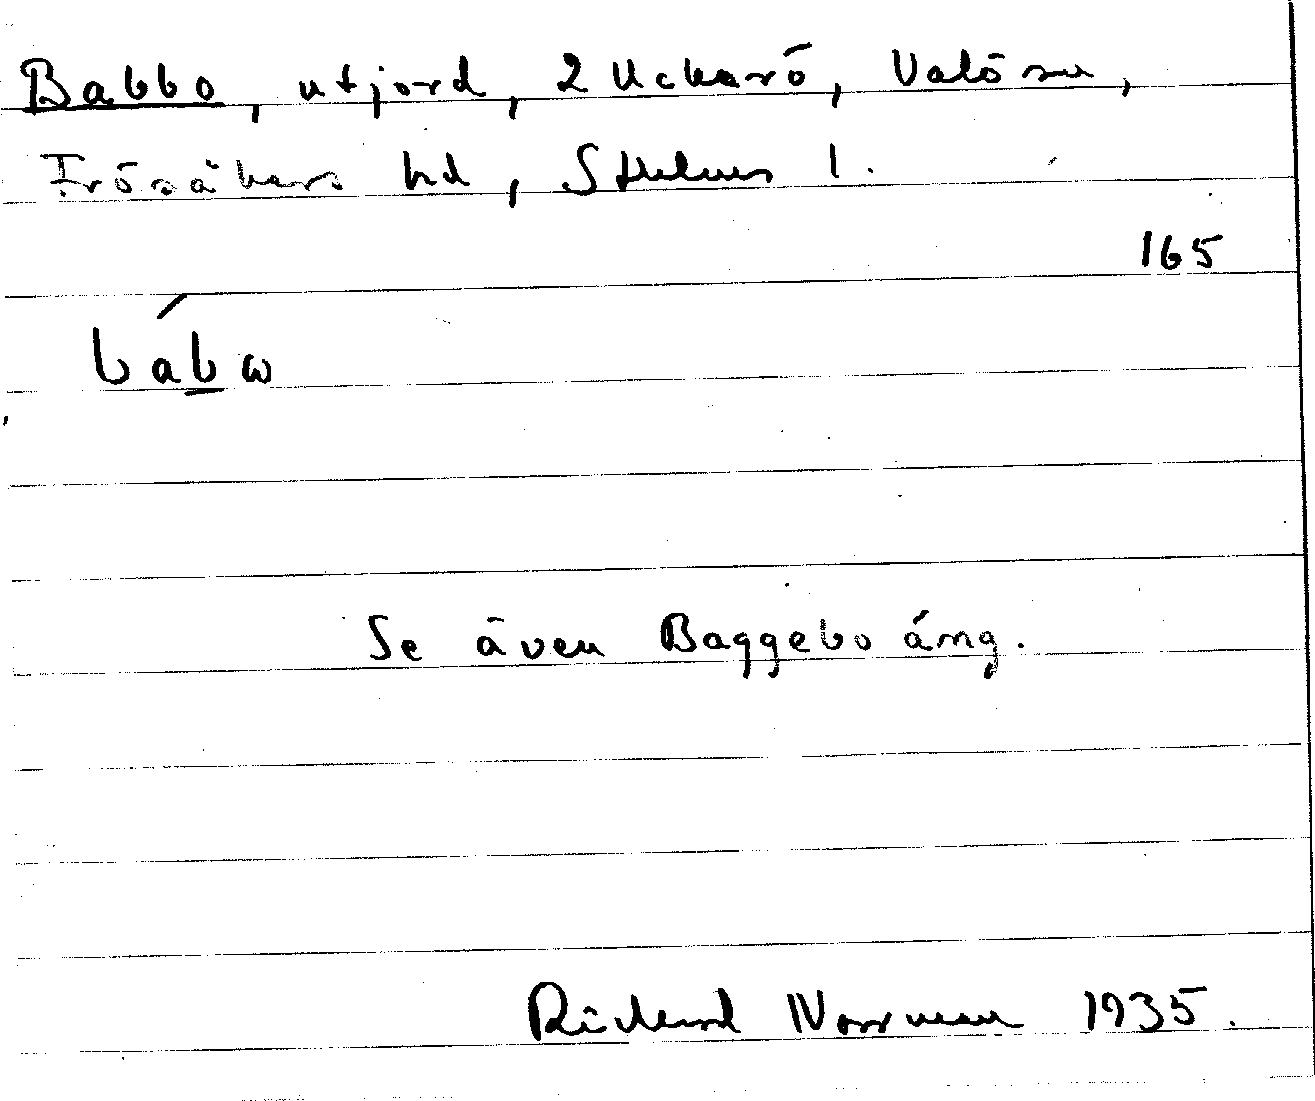 Babbo, utjord, 2 Uckarö, Valö sn,
Frösåkers hd, Sthlms l.
165
bábω
Se även Baggebo äng.
Rickard Norrman 1935.